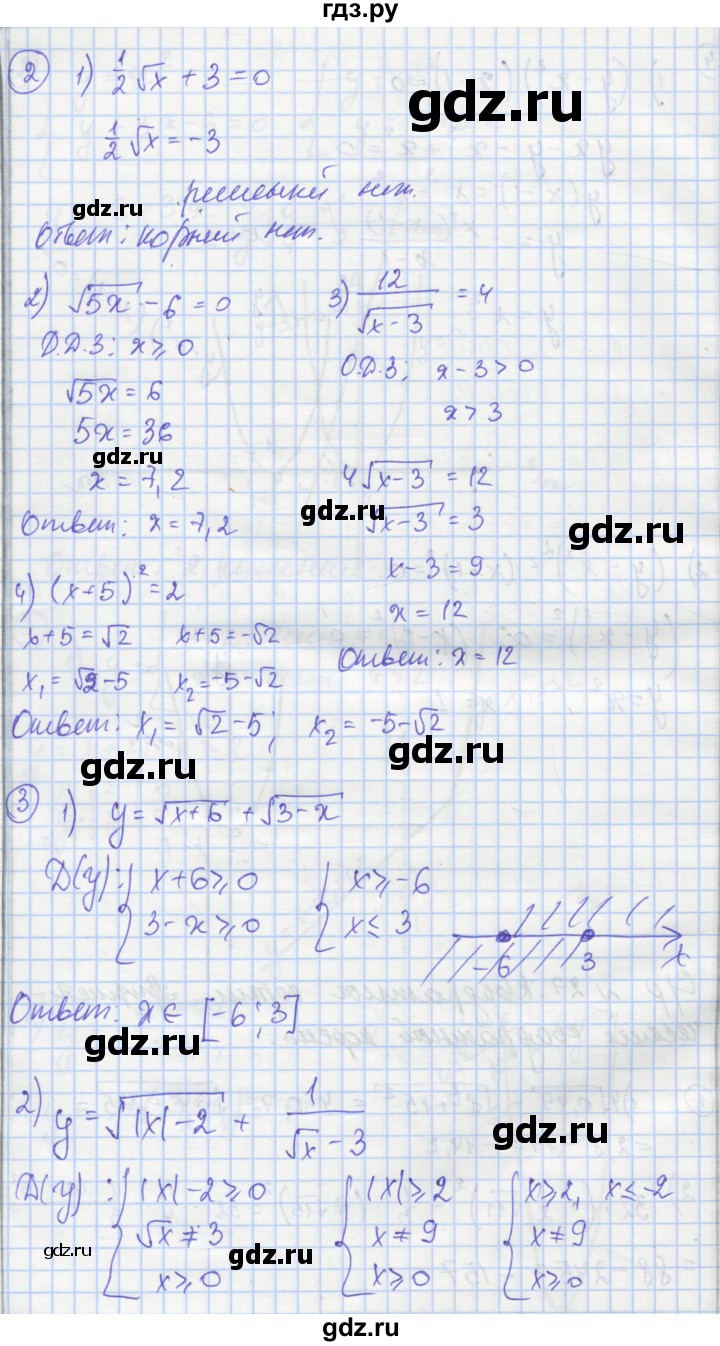 гдз.ру
2 1) 1/2 √x + 3 = 0
gdz.ru
1/2 √x = -3
решений нет.
gdz.ru
Ответ: корней нет.
2) √5x - 6 = 0
О.Д.З: x ⩾ 0
√5x = 6
5x = 36
gdz.ru
x = 7,2
Ответ: x = 7,2
3) 12/√x-3 = 4
О.Д.З; x - 3 > 0
x > 3
4√x-3 = 12
gdz.ru
√x-3 = 3
gdz.ru
x - 3 = 9
x = 12
Ответ: x = 12
4) (x+5)² = 2
x+5 = √2 x+5 = -√2
x₁ = √2-5 x₂ = -5-√2
Ответ: x₁ = √2-5; x₂ = -5-√2
gdz.ru
gdz.ru
3 1) y = √x+6 + √3-x
Д(y): { x+6 ⩾ 0 { x ⩾ -6
3-x ⩾ 0 x ≤ 3
-6 3 x
Ответ: x ∈ [-6; 3]
gdz.ru
2) y = √|x|-2 + 1/√x-3
gdz.ru
Д(y): { |x|-2 ⩾ 0 { |x| ⩾ 2 { x ⩾ 2, x ≤ -2
√x ≠ 3 x ≠ 9 x ≠ 9
gdz.ru
gdz.ru
x ⩾ 0 x ⩾ 0 x ⩾ 0
gdz.ru
gdz.ru